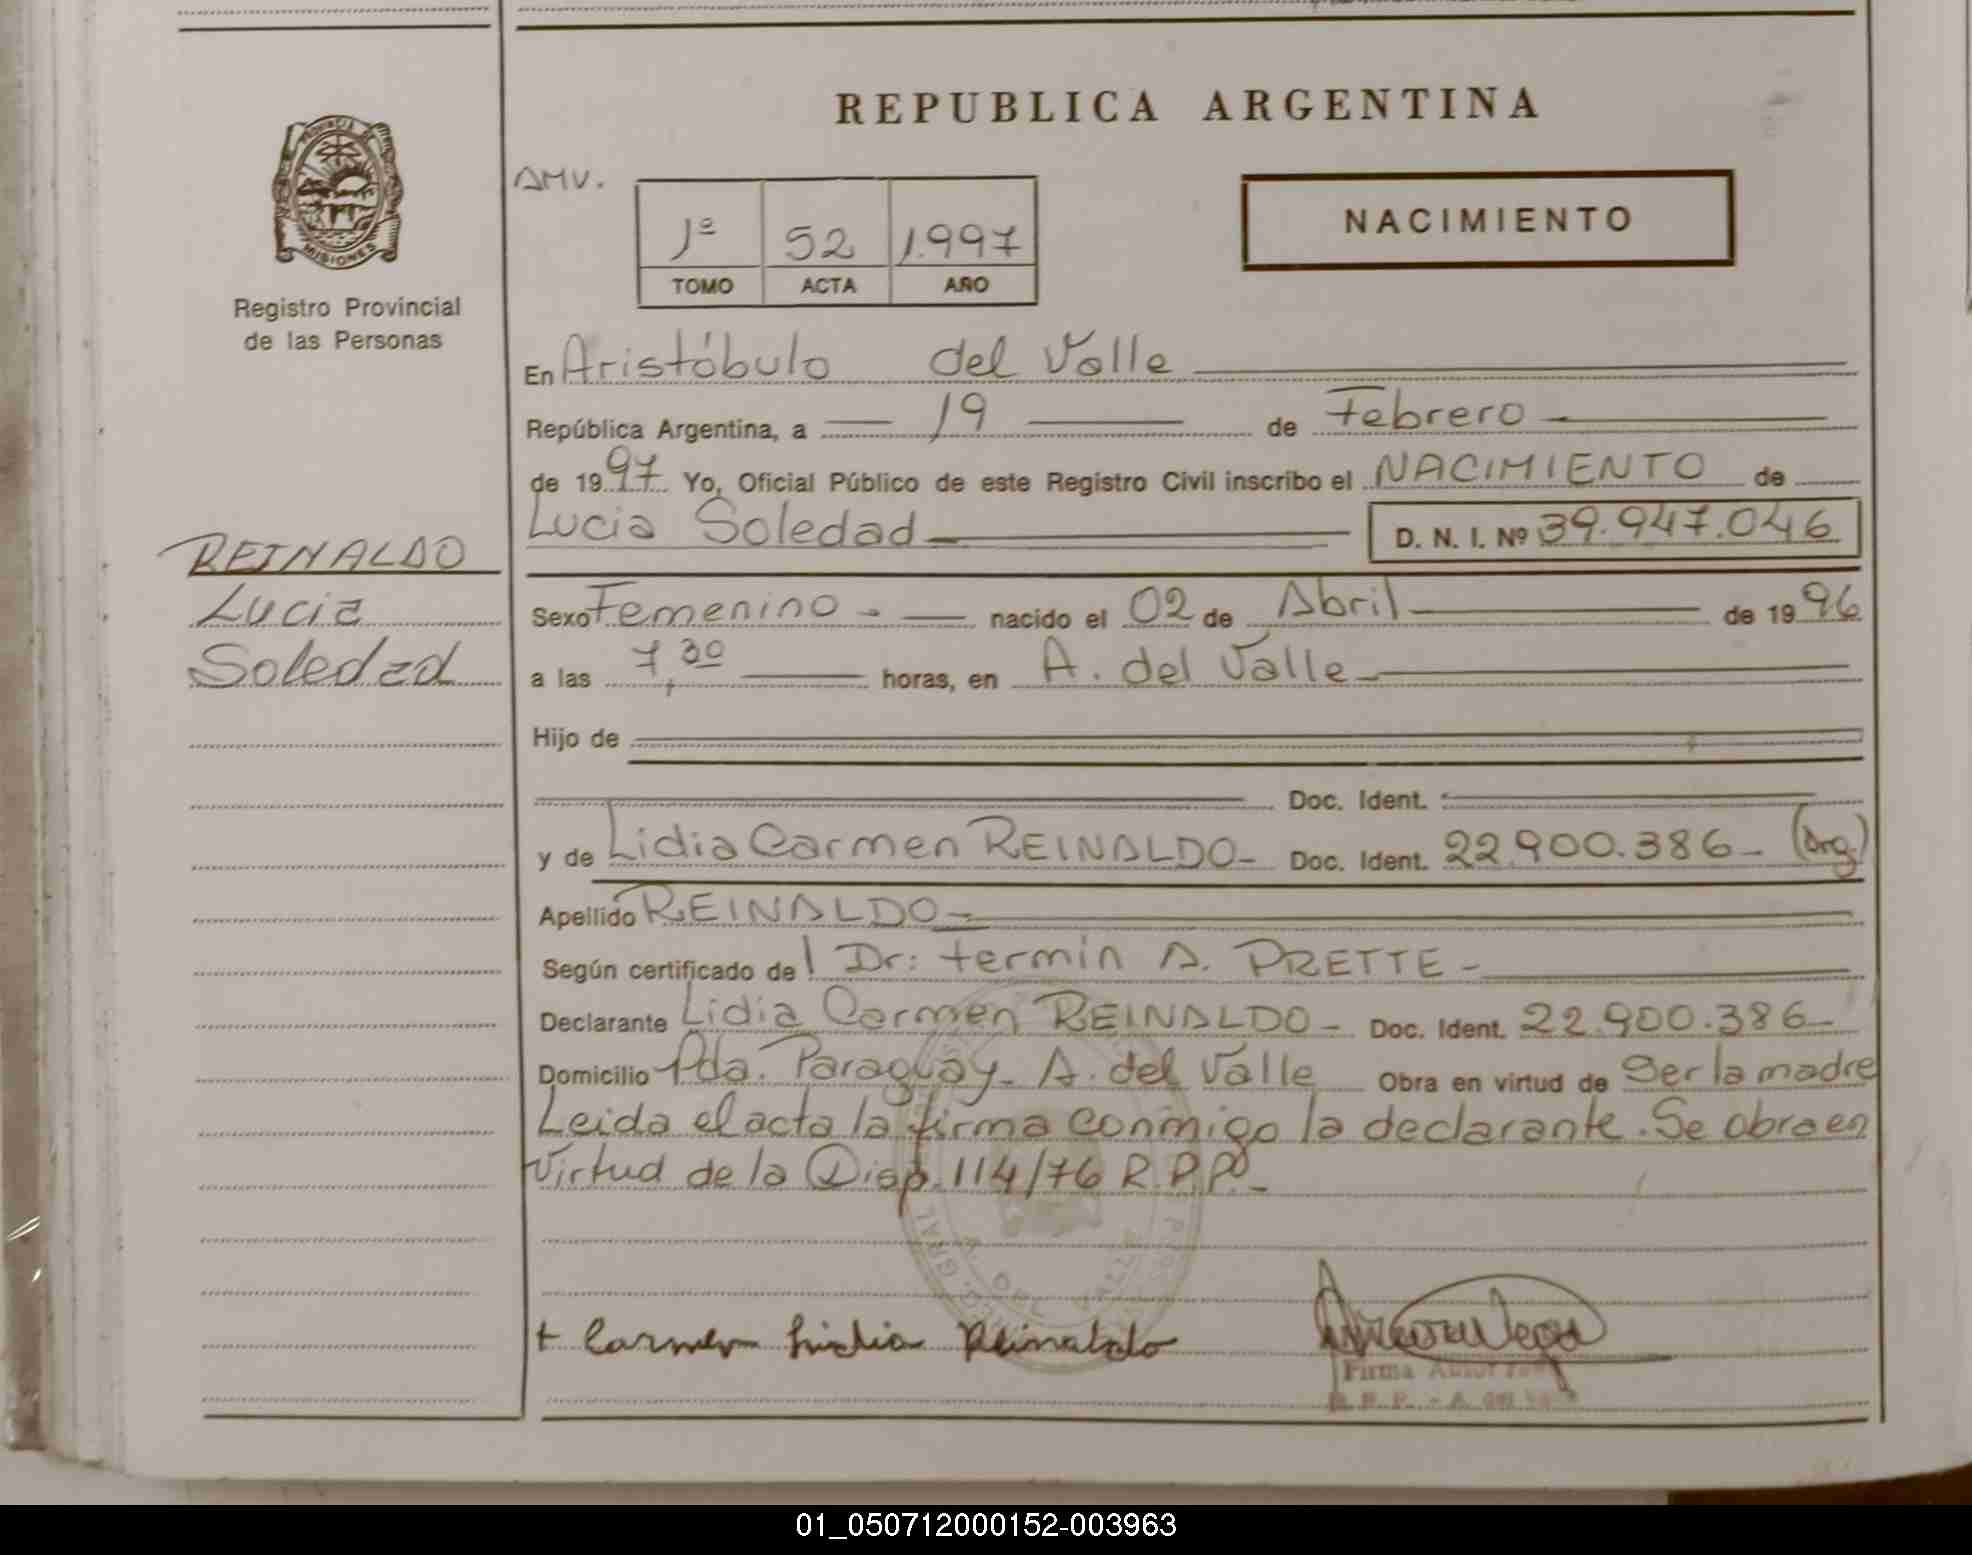 REPUBLICA ARGENTINA
PROVINCIA DE
MISIONES
Registro Provincial
de las Personas
AMV.
NACIMIENTO
1º 52 1.997
TOMO ACTA AÑO
En Aristóbulo del Valle
República Argentina, a 19 de Febrero
de 1997 Yo, Oficial Público de este Registro Civil inscribo el NACIMIENTO de
Lucia Soledad D. N. I. Nº 39.947.046
REINALDO
Lucia
Soledad
Sexo Femenino nacido el 02 de Abril de 1996
a las 7,30 horas, en A. del Valle
Hijo de
Doc. Ident.
y de Lidia Carmen REINALDO Doc. Ident. 22.900.386 (Arg.)
Apellido REINALDO
Según certificado de l Dr: Fermín A. PRETTE
Declarante Lidia Carmen REINALDO Doc. Ident. 22.900.386
Domicilio Pda. Paraguay A. del Valle Obra en virtud de Ser la madre
Leida el acta la firma conmigo la declarante. Se obra en
virtud de la Disp. 114/76 R.P.P.
A. DEL VALLE
+ Carmen Lidia Reinaldo
Firma
R. P. P. - A. del
01_050712000152-003963